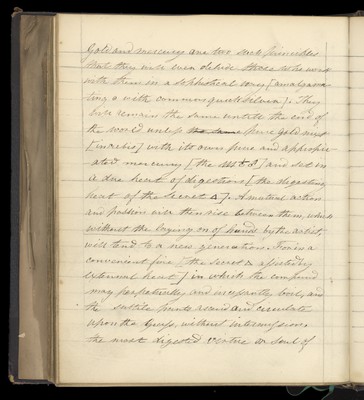 Gold and mercury are two such principles
that they will even deride those who work
with them in a sophistical way, [amalgama-
ting ☿ with common quicksilver]. They
will remain the same untill the end of
the world unless pure gold mix
[in] with its own pure and appropri-
ated mercury [the ] and set in
a due heat of digestion [the digesting
heat of the secret △]. A mutual action
and passion will then rise between them, which
without the laying on of hands by the artist,
will tend to a new generation. For in a
convenient fire [the secret & a steady
external heat] in which the compound
may perpetually and incessantly boil, and
the subtile parts ascend and circulate
upon the Gross, without intermission.
the most digested virtue or soul of